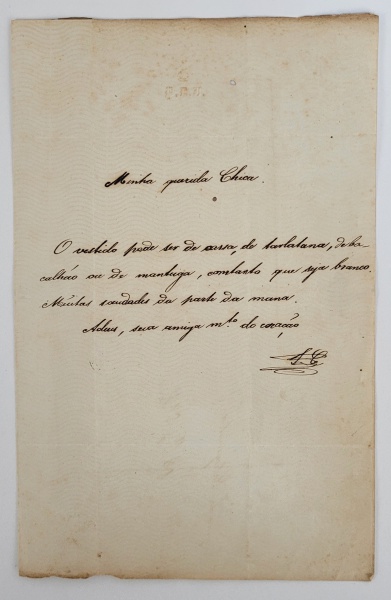 Minha querida Chica.
O vestido pode ser de cassa, de tarlatana, de ba
calháo ou de manteiga, comtanto que seja branco.
Muitas saudades da parte da mana.
Adeus, sua amiga m.to do coração